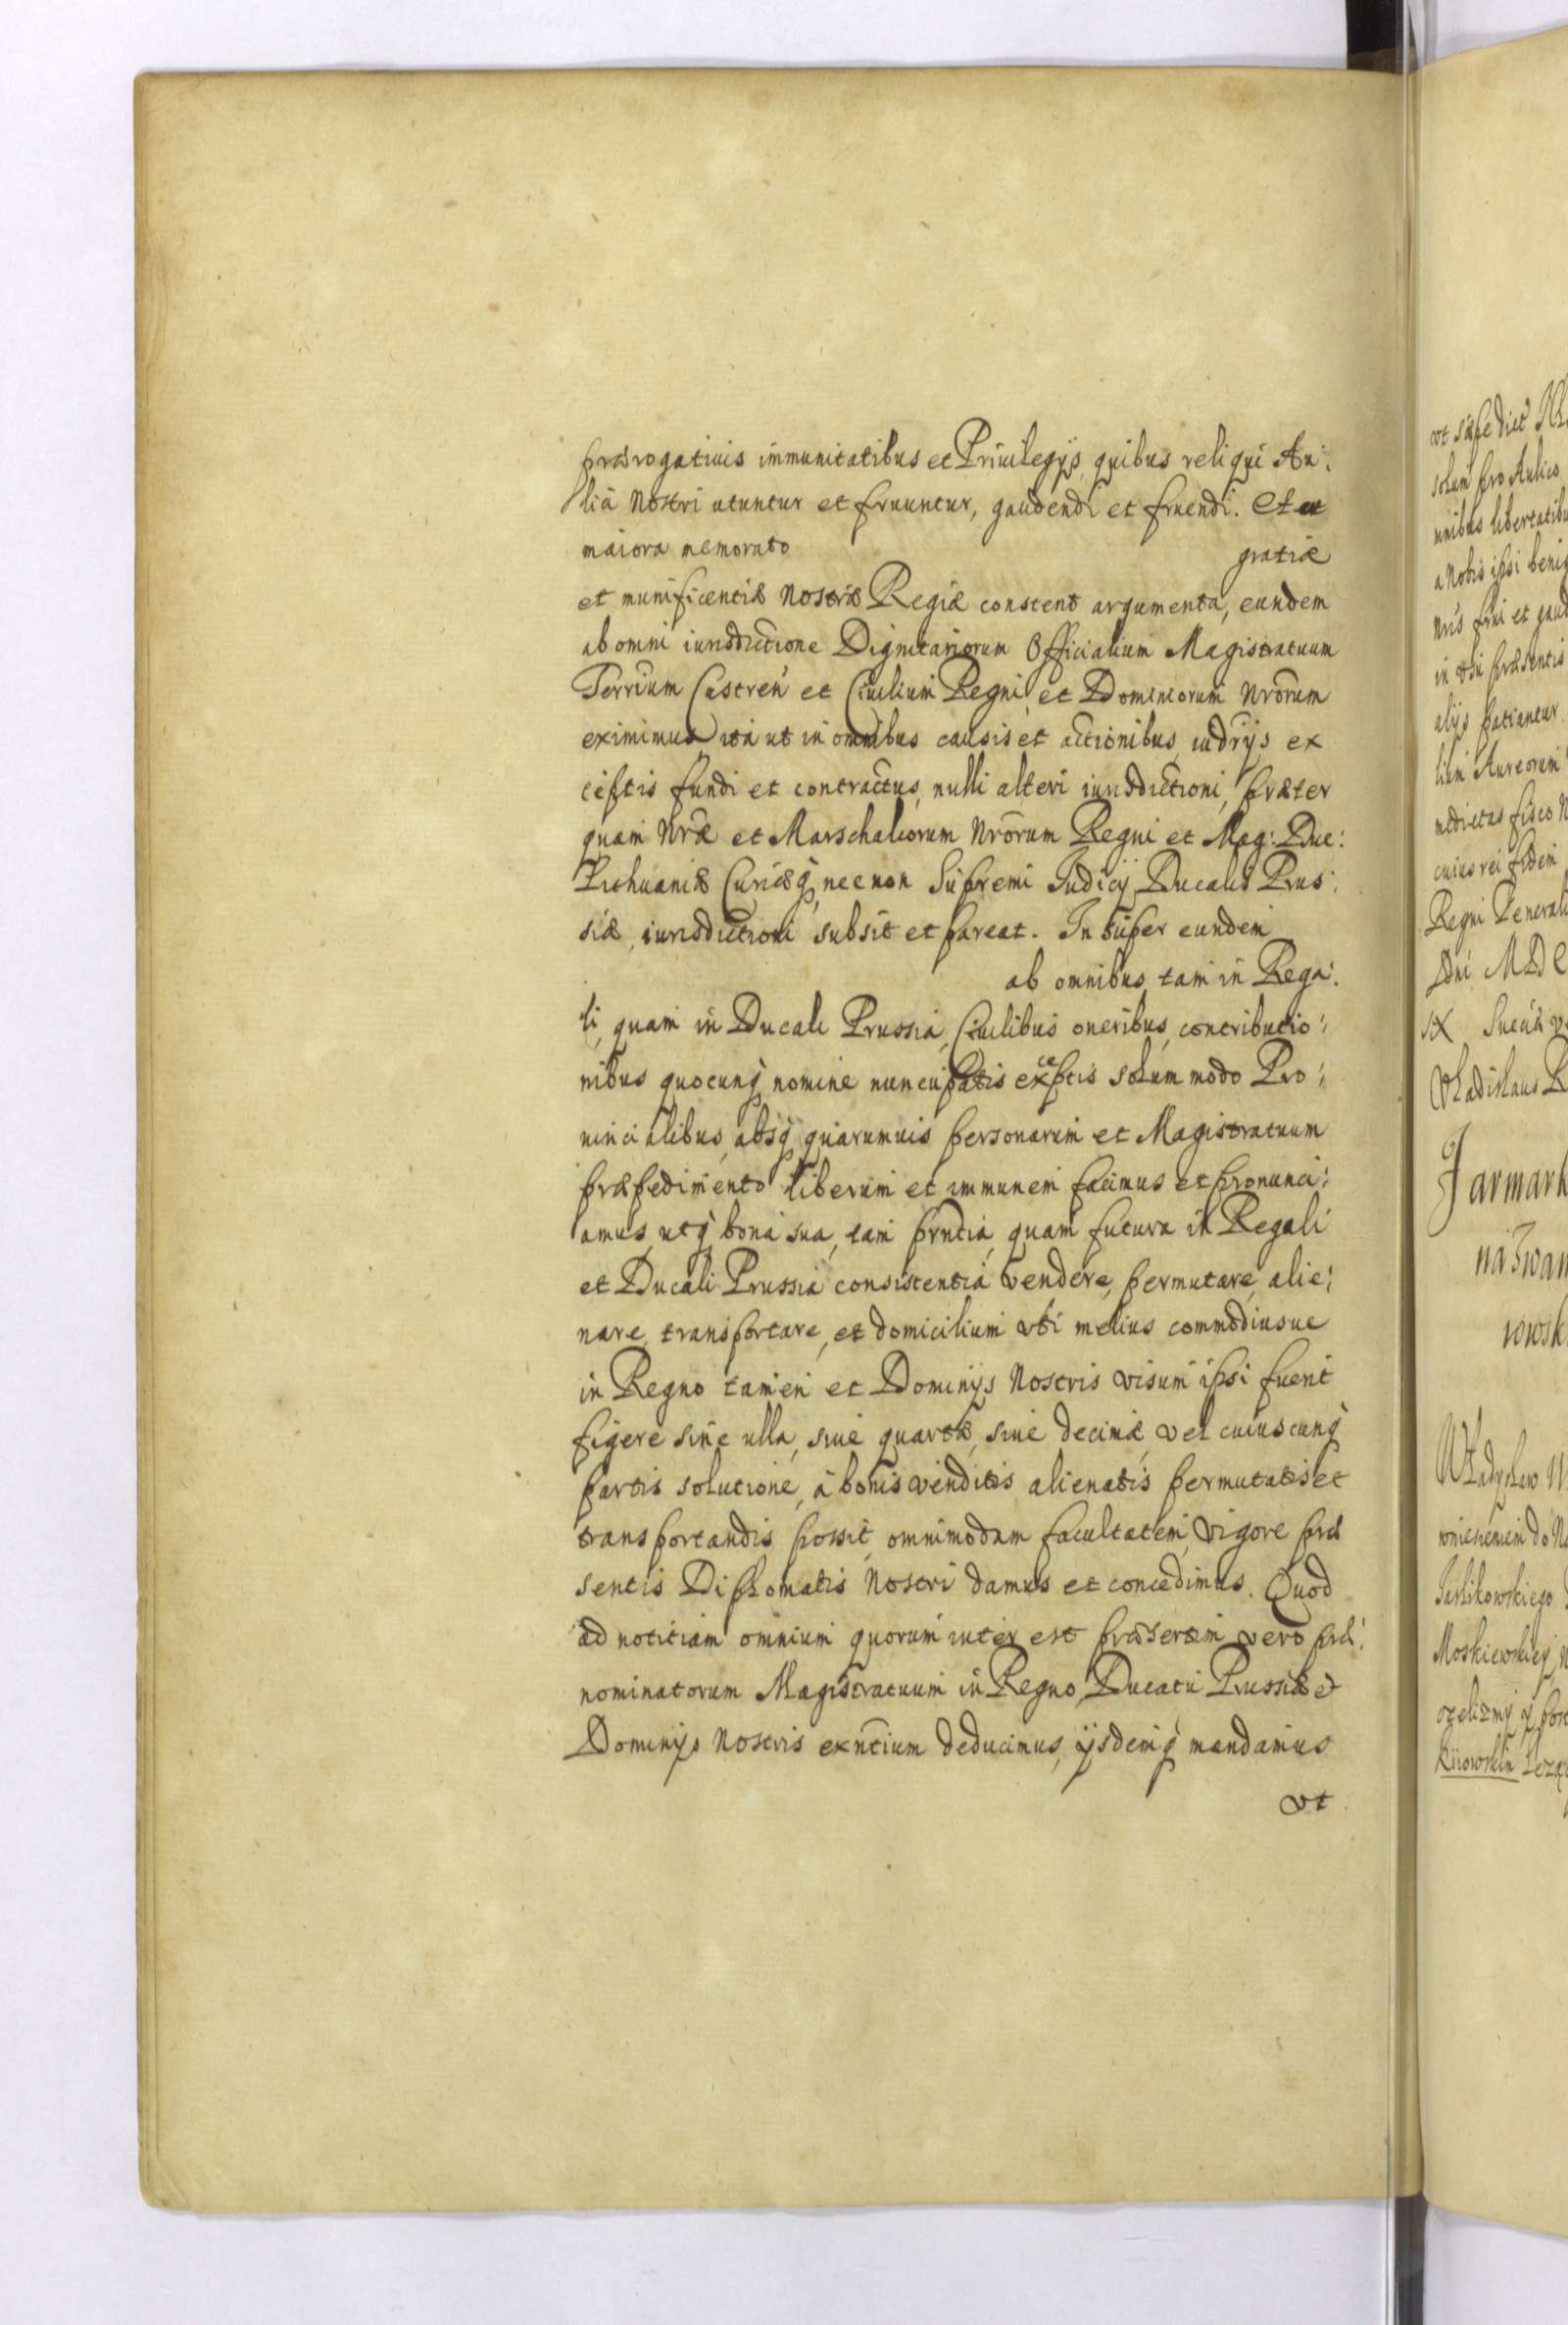 prærogatiuis immunitatibus et Priuilegijs, quibus reliqui Au:
lici Nostri utuntur et fruuntur, gaudendi et fruendi. Et ut
maiora memorato gratiæ
et munificentiæ Nostræ Regiæ constent argumenta, eundem
ab omni iurisdictione Dignitariorum Officialium Magistratuum
Terrium Castren et Ciuilium Regni et Dominiorum Nrorum
eximimus ita ut in omnibus causis et actionibus, iudrijs ex
ceptis fundi et contractus, nulli alteri iurisdictioni, præter
quam Nræ et Marschalcorum Nrorum Regni et Mag: Duc:
Lithuaniæ Curiæq, nec non Supremi Judicij Ducalis Prus:
siæ, iurisdictioni subsit et pareat. In super eundem
ab omnibus, tam in Rega:
li, quam in Ducali Prussia, Ciuilibus oneribus, contributio:
nibus quocunq nomine nuncupatis exceptis solum modo Pro:
uincialibus, absq quarumuis personarum et Magistratuum
præpedimento liberum et immunem facimus et pronunci:
amus, utq bona sua, tam prntia, quam futura in Regali
et Ducali Prussia consistentia vendere, permutare, alie:
nare, transportare, et domicilium vbi melius commodiusue
in Regno tamen et Dominijs Nostris visum ipsi fuerit
figere sine ulla, siue quartæ, siue decimæ, vel cuiuscunq
partis solutione, à bonis venditis alienatis permutatis et
transportandis possit, omnimodam facultatem, vigore præ
sentis Diplomatis Nostri damus et concedimus. Quod
ad notitiam omnium quorum inter est præsertim vero præ:
nominatorum Magistratuum in Regno, Ducatu Prussiæ et
Dominijs Nostris exntium deducimus, ijsdemq mandamus
vt
vt sæpe dict
solum pro Aulico
mnibus libertatibu
a Nobis ipsi benig
Nris frui et gaud
in præsentis
alijs patiantur.
lium Aureorum
medietas fisco N
cuius rei fidem
Regni Generali
Dni MDC
Sueciæ v
Vladislaus R
Jarmark
na Iwan
Władysław
Moskiewskiey